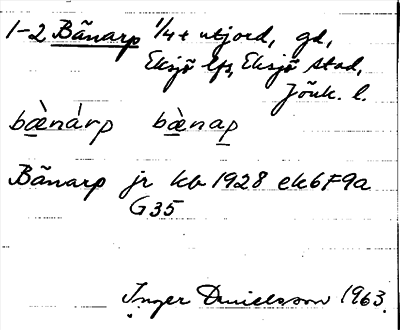 1-2 Bãnarp 1/4 + utjord, gd,
Eksjö lfs, Eksjö stad,
Jönk. l.
bæ̀nàrp bæ̀nap
Bãnarp jr kb 1928 ek6F9a
G35
Inger Danielsson 1963